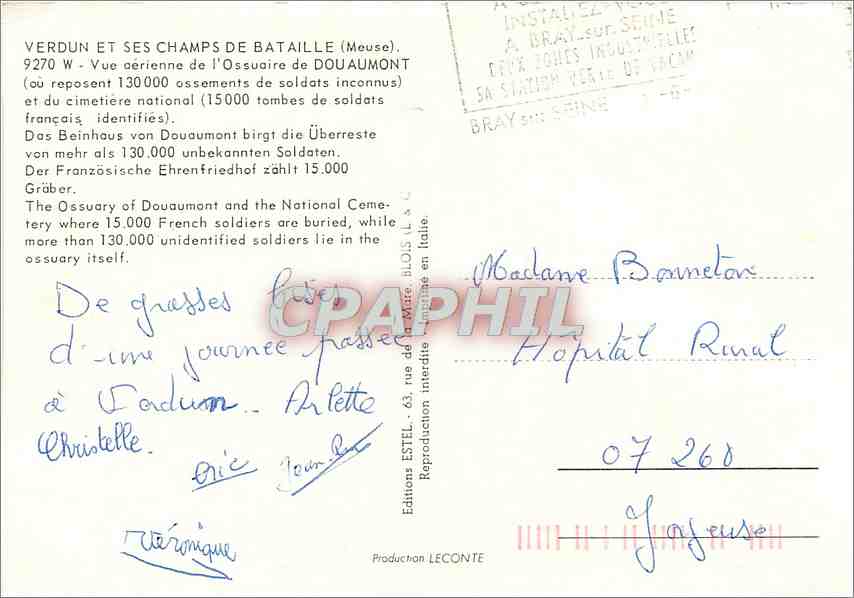 VERDUN ET SES CHAMPS DE BATAILLE (Meuse).
9270 W - Vue aérienne de l'Ossuaire de DOUAUMONT
(où reposent 130000 ossements de soldats inconnus)
et du cimetière national (15000 tombes de soldats
français identifiés).
Das Beinhaus von Douaumont birgt die Überreste
von mehr als 130.000 unbekannten Soldaten.
Der Französische Ehrenfriedhof zählt 15.000
Gräber.
The Ossuary of Douaumont and the National Ceme-
tery where 15.000 French soldiers are buried, while
more than 130.000 unidentified soldiers lie in the
ossuary itself.
De grosses bises
d'une journée passée
à Verdun. Arlette
Christelle.
éric Jean-
Véronique
Editions ESTEL. - 63, rue de la Mare, BLOIS (L & C
Reproduction interdite - Imprimé en Italie.
Production LECONTE
INSTALLEZ
A BRAY-sur-SEINE
DEUX ZONES INDUSTRIELLES
SA STATION VERTE DE VACAN
BRAY sur SEINE
Madame Bonneton
Hôpital Rural
07 260
Joyeuse
CPAPHIL